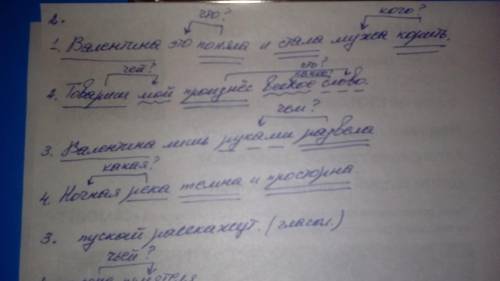 2.
что? кого?
1. Валентина это поняла и стала мужа корить.
чей? что?
какое?
2. Товарищ мой произнёс всякое слово.
чем?
3. Валентина лишь руками развела
какая?
4. Ночная река темна и просторна
3. пускай расскажут. (глагол.)
чьей?